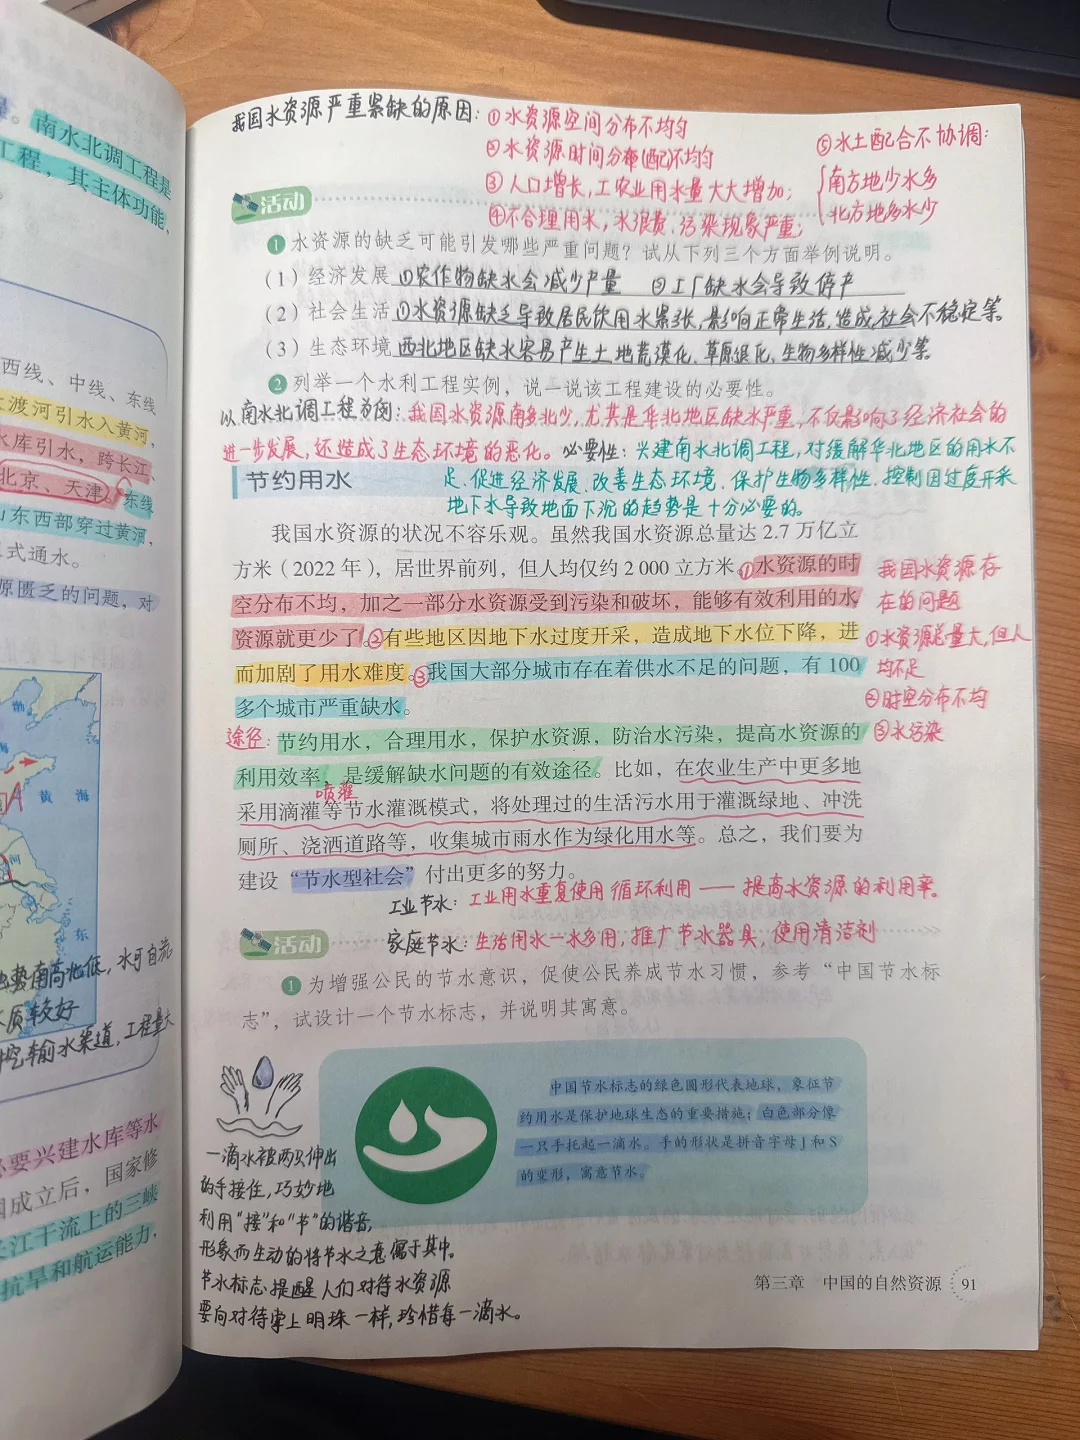 南水北调工程是
工程，其主体功能，
西线、中线、东线
渡河引水入黄河，
水库引水，跨长江、
北京、天津。东线
山东西部穿过黄河，
式通水。
源匮乏的问题，对
渤
黄 海
河
东
地势南高北低，水可自流
水质较好
挖输水渠道，工程量大
必要兴建水库等水
国成立后，国家修
长江干流上的三峡
抗旱和航运能力，
我国水资源严重紧缺的原因：①水资源空间分布不均匀
②水资源时间分布(配)不均匀
③人口增长，工农业用水量大大增加；
④不合理用水，水浪费、污染现象严重；
⑤水土配合不协调：
南方地少水多
北方地多水少
活动
1 水资源的缺乏可能引发哪些严重问题？试从下列三个方面举例说明。
（1）经济发展 ①农作物缺水会减少产量 ②工厂缺水会导致停产
（2）社会生活 ①水资源缺乏导致居民饮用水紧张，影响正常生活，造成社会不稳定等。
（3）生态环境 西北地区缺水容易产生土地荒漠化、草原退化、生物多样性减少等。
2 列举一个水利工程实例，说一说该工程建设的必要性。
以南水北调工程为例：我国水资源南多北少，尤其是华北地区缺水严重，不仅影响了经济社会的
进一步发展，还造成了生态环境的恶化。必要性：兴建南水北调工程，对缓解华北地区的用水不
足、促进经济发展、改善生态环境、保护生物多样性、控制因过度开采
地下水导致地面下沉的趋势是十分必要的。
节约用水
我国水资源的状况不容乐观。虽然我国水资源总量达 2.7 万亿立
方米（2022 年），居世界前列，但人均仅约 2 000 立方米。①水资源的时
空分布不均，加之一部分水资源受到污染和破坏，能够有效利用的水
资源就更少了。②有些地区因地下水过度开采，造成地下水位下降，进
而加剧了用水难度。③我国大部分城市存在着供水不足的问题，有 100
多个城市严重缺水。
我国水资源存
在的问题
①水资源总量大，但人
均不足
②时空分布不均
③水污染
途径：节约用水，合理用水，保护水资源，防治水污染，提高水资源的
利用效率，是缓解缺水问题的有效途径。比如，在农业生产中更多地
喷灌
采用滴灌等节水灌溉模式，将处理过的生活污水用于灌溉绿地、冲洗
厕所、浇洒道路等，收集城市雨水作为绿化用水等。总之，我们要为
建设“节水型社会”付出更多的努力。
工业节水：工业用水重复使用循环利用——提高水资源的利用率。
家庭节水：生活用水一水多用，推广节水器具，使用清洁剂
活动
1 为增强公民的节水意识，促使公民养成节水习惯，参考“中国节水标
志”，试设计一个节水标志，并说明其寓意。
中国节水标志的绿色圆形代表地球，象征节
约用水是保护地球生态的重要措施；白色部分像
一只手托起一滴水。手的形状是拼音字母 J 和 S
的变形，寓意节水。
一滴水被两只伸出
的手接住，巧妙地
利用“接”和“节”的谐音，
形象而生动的将节水之意寓于其中。
节水标志提醒人们对待水资源
要向对待掌上明珠一样，珍惜每一滴水。
第三章 中国的自然资源 91